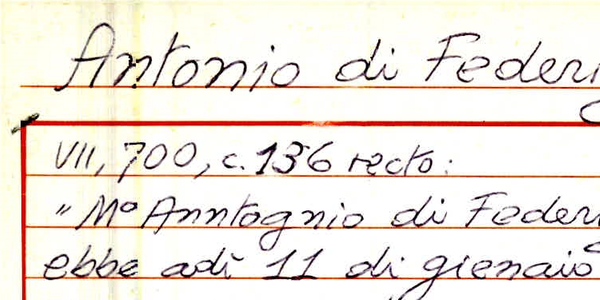 Antonio di Federi
VII, 700, c. 136 recto:
"Mº Anntognio di Federi
ebbe adì 11 di gienaio